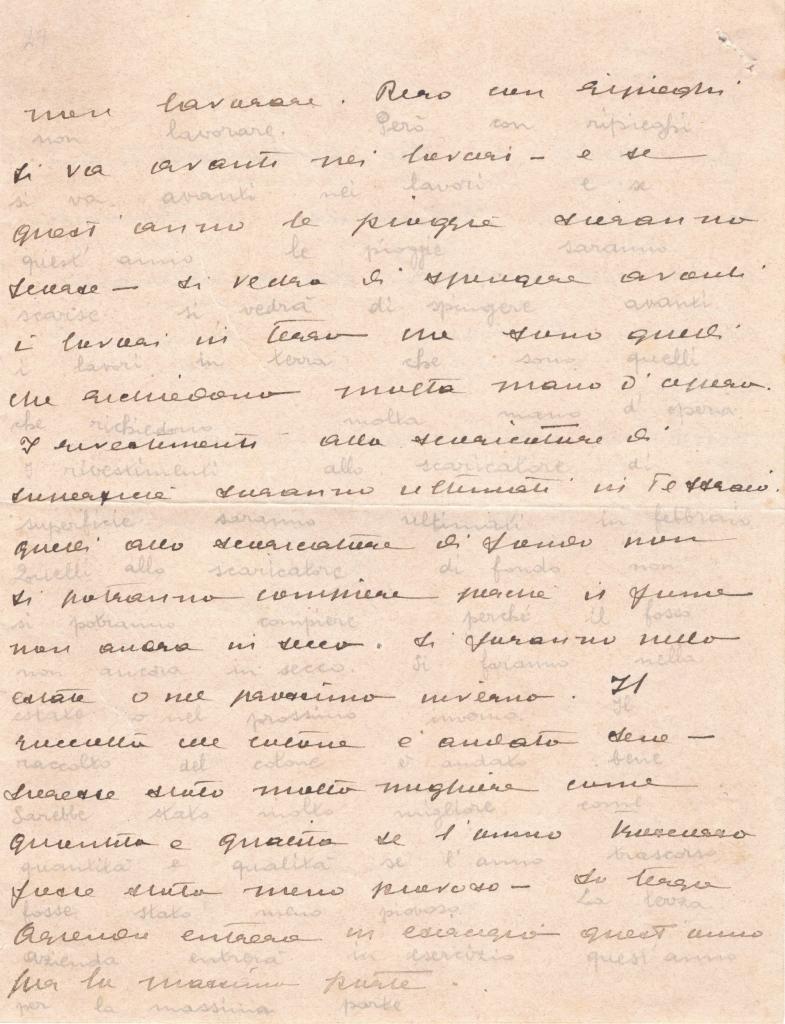 non lavorare. Però con ripieghi
non lavorare. Però con ripieghi
si va avanti nei lavori - e se
si va avanti nei lavori e se
quest'anno le pioggie saranno
quest'anno le pioggie saranno
scarse - si vedrà di spingere avanti
scarse si vedrà di spingere avanti
i lavori in terra che sono quelli
i lavori in terra che sono quelli
che richiedono molta mano d'opera.
che richiedono molta mano d'opera
I rivestimenti allo scaricatore di
I rivestimenti allo scaricatore di
superficie saranno ultimati in febbraio.
superficie saranno ultimati in febbraio
quelli allo scaricatore di fondo non
Quelli allo scaricatore di fondo non
si potranno compiere perchè il fiume
si potranno compiere perché il fosso
non andrà in secco. Si faranno nella
non ancora in secco. Si faranno nella
estate o nel prossimo inverno. Il
estate o nel prossimo inverno. Il
raccolto del cotone è andato bene -
raccolto del cotone è andato bene
sarebbe stato molto migliore come
Sarebbe stato molto migliore come
quantità e qualità se l'anno trascorso
quantità e qualità se l'anno trascorso
fosse stato meno piovoso - La terza
fosse stato meno piovoso. La terza
Azienda entrerà in esercizio quest'anno
Azienda entrerà in esercizio quest'anno
per la massima parte.
per la massima parte